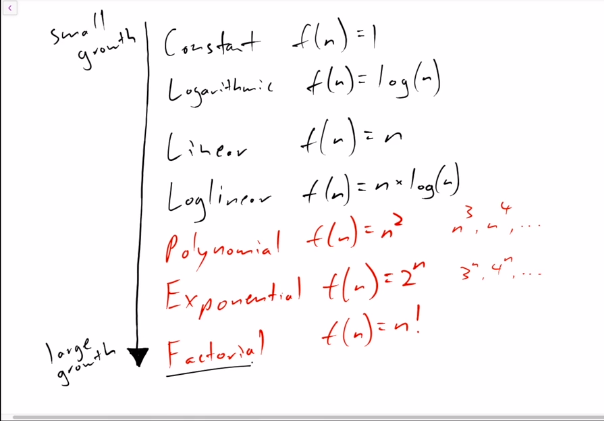 small growth
Constant f(n) = 1
Logarithmic f(n) = log(n)
Linear f(n) = n
Loglinear f(n) = n × log(n)
Polynomial f(n) = n² n³, n⁴, ...
Exponential f(n) = 2ⁿ 3ⁿ, 4ⁿ, ...
f(n) = n!
large growth
Factorial